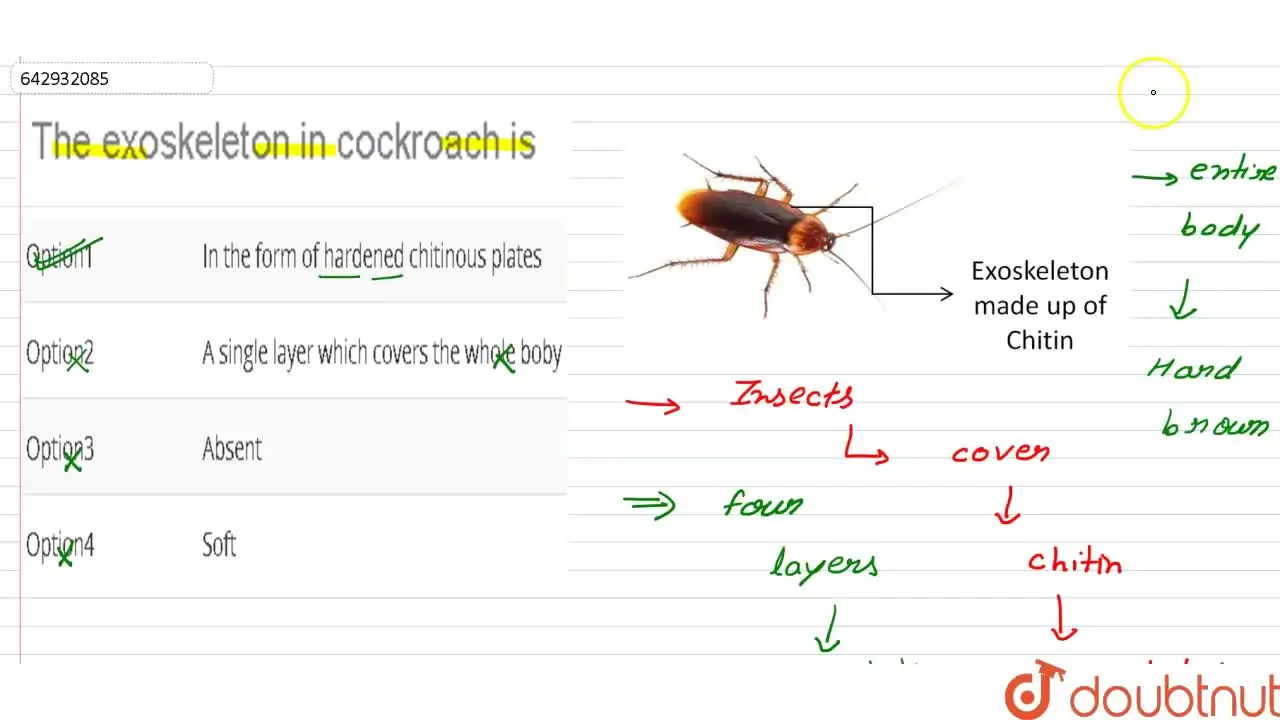 642932085
The exoskeleton in cockroach is
Option1 In the form of hardened chitinous plates
Option2 A single layer which covers the whole boby
Option3 Absent
Option4 Soft
Exoskeleton
made up of
Chitin
→ entire
body
↓
Hard
brown
→ Insects
↳ cover
↓
chitin
↓
⇒ four
layers
↓
doubtnut